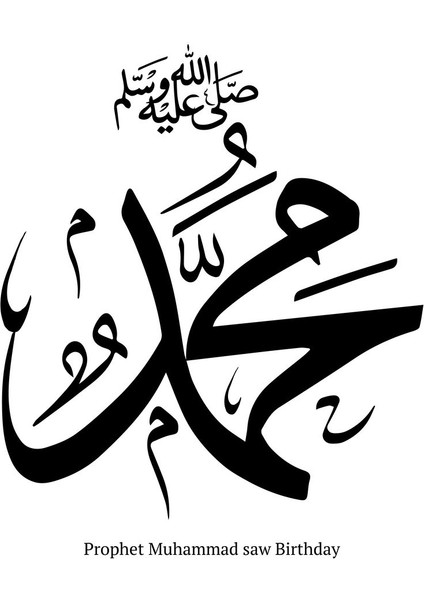 صَلَّى اللّٰه عَلَيْهِ وَسَلَّم
مُحَمَّدٌ
Prophet Muhammad saw Birthday